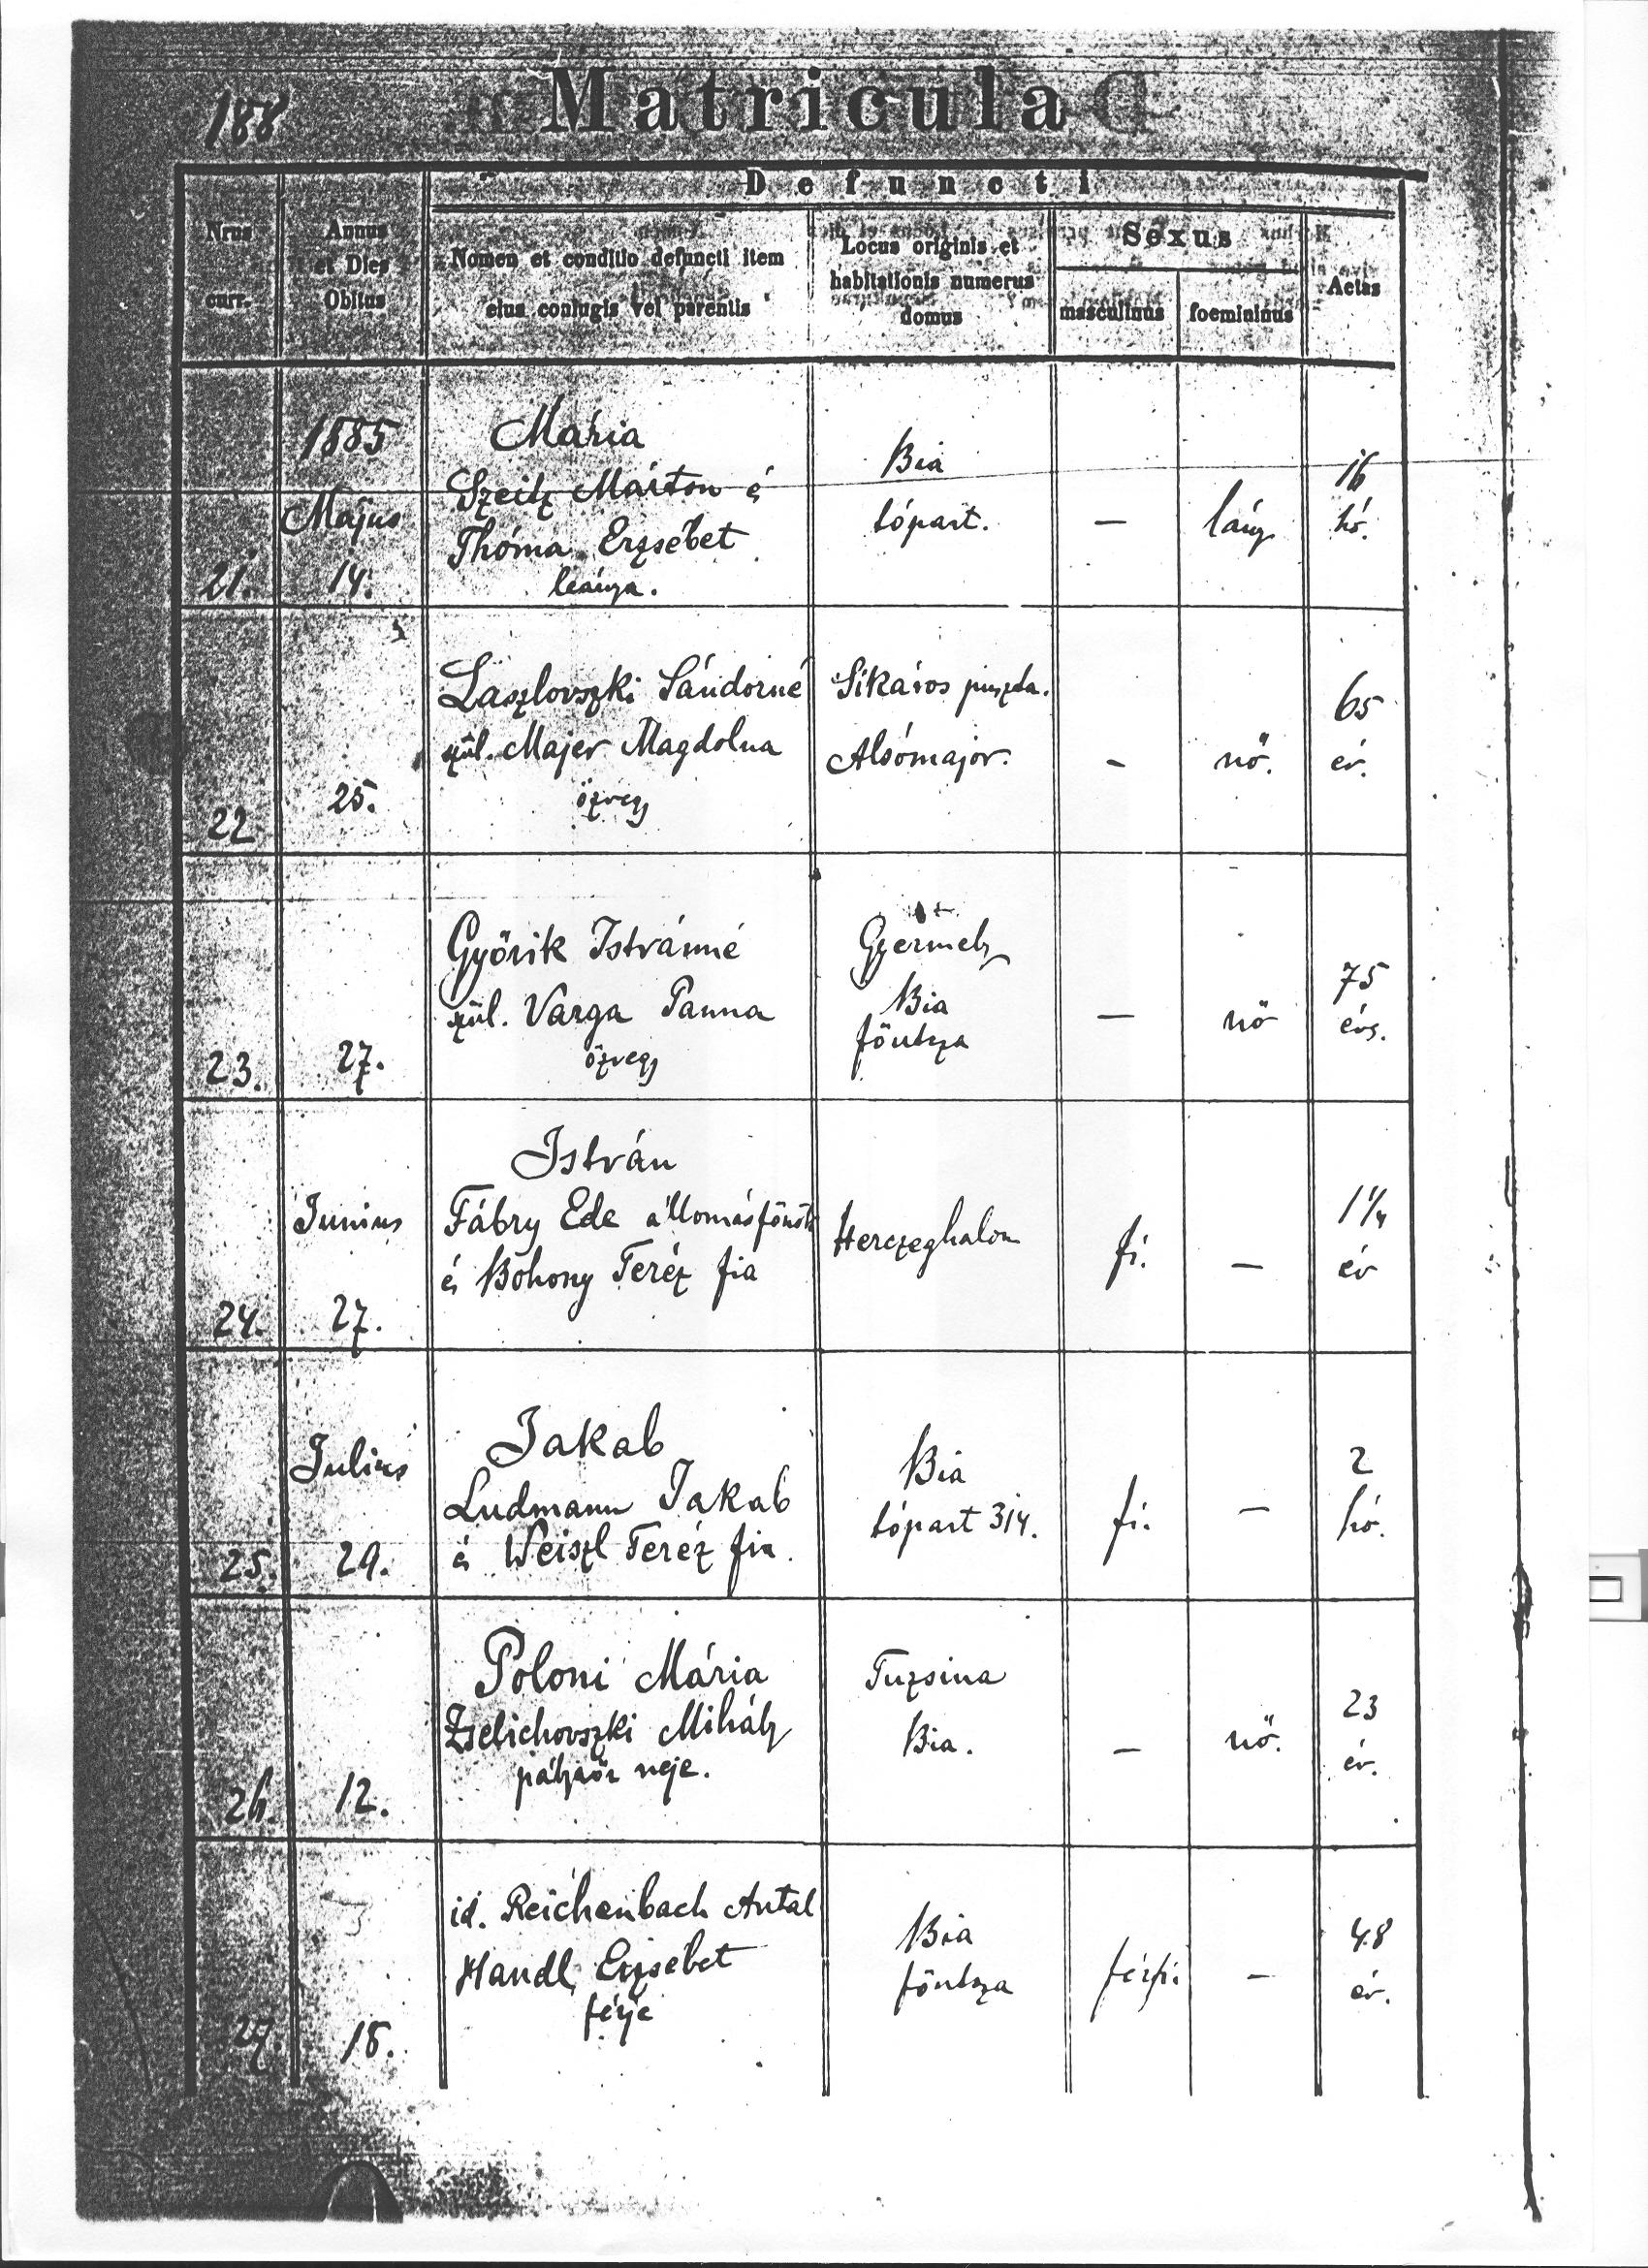 188
Matricula
Defuncti
Nrus curr.
Annus et Dies Obitus
Nomen et conditio defuncti item eius coniugis vel parentis
Locus originis et habitationis numerus domus
Sexus
masculinus
foemininus
Aetas
1885
Május
14.
21.
Mária
Szeitz Márton é
Thóma Erzsébet
leánya.
Bia
tópart.
—
lány
16
hó.
22
25.
Laszlovszki Sándorné
szül. Majer Magdolna
özvegy
Sikáros puszta.
Alsómajor.
-
nő.
65
év.
23.
27.
Győrik Istvánné
szül. Varga Panna
özvegy
Gyermely
Bia
főutsza
—
nő
75
évs.
24.
Junius
27.
István
Fábry Ede állomásfőnök
é Bohony Teréz fia
Herczeghalom
fi.
—
1 1/4
év
25.
Julius
29.
Jakab
Ludmann Jakab
é Weiszl Teréz fia.
Bia
tópart 314.
fi.
—
2
hó.
26.
12.
Poloni Mária
Zselichovszki Mihály
pályaőr neje.
Tuzsina
Bia.
—
nő.
23
év.
27.
18.
id. Reichenbach Antal
Handl Erzsébet
férje
Bia
főutsza
férfi.
—
48
év.